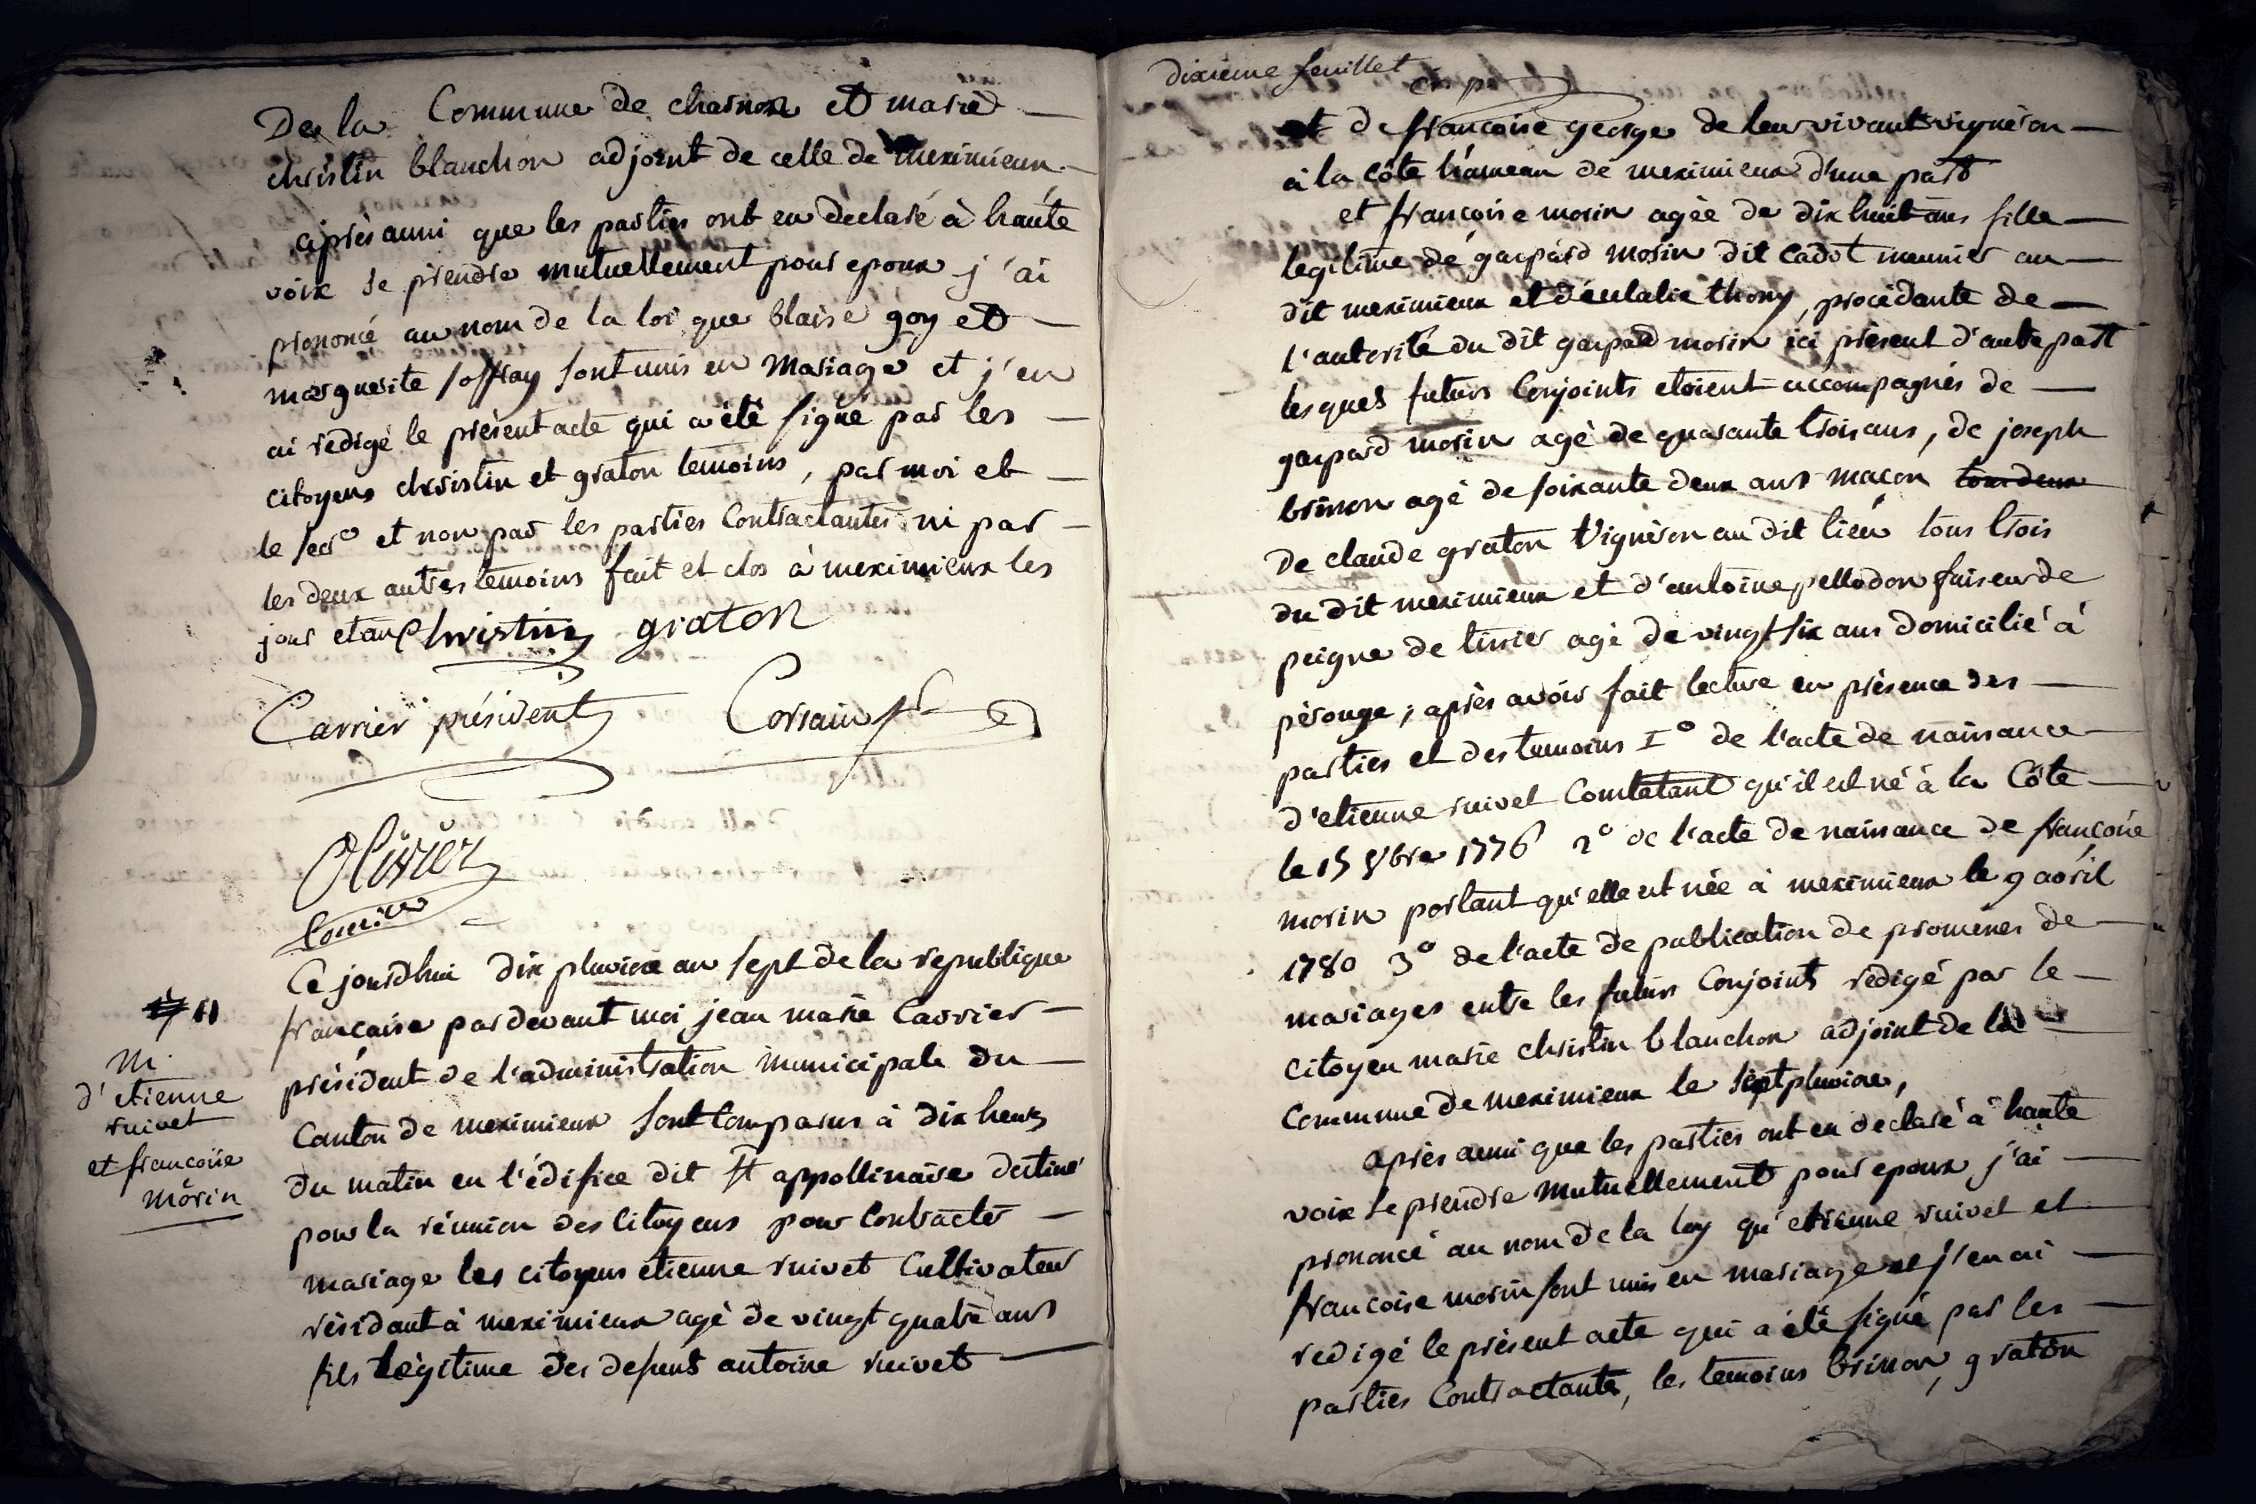 De la Commune de charnox et marie
christin blanchon adjoint de celle de meximieux
après aussi que les parties ont eu déclaré à haute
voix se prendre mutuellement pour epoux j'ai
prononcé au nom de la loi que blaise goy et
marguerite joffray sont unis en Mariage et j'en
ai redigé le présent acte qui a été signé par les
citoyens christin et graton temoins, par moi et
le secre et non par les parties Contractantes ni par
les deux autres temoins fait et clos à meximieux les
jour et an Christin graton
Carrier président Corsain
Olivier
Ce jourdhui dix pluviose an sept de la republique
francaise pardevant moi jean marie Carrier
président de l'administration municipale du
Canton de meximieux sont Comparus à dix heures
du matin en l'édifice dit st appollinaire destiné
pour la réunion des Citoyens pour Contracter
mariage les citoyens etienne ruivet Cultivateur
résidant à meximieux agé de vingt quatre ans
fils légitime des defunts antoine ruivet
11
m.
d'etienne
ruivet
et francoise
morin
dixieme feuillet
et de francoise george de leur vivant vigneron
à la côte hameau de meximieux d'une part
et francoise morin agée de dix huit ans fille
legitime de gaspard morin dit cadot meunier au
dit meximieux et d'eulalie thony, procédante de
l'autorité du dit gaspard morin ici présent d'autre part
lesquels futurs Conjoints etoient accompagnés de
gaspard morin agé de quarante trois ans, de joseph
brinon agé de soixante deux ans macon tous deux
de claude graton Vigneron au dit lieu tous trois
du dit meximieux et d'antoine pellodon faiseur de
peigne de tissier agé de vingt six ans domicilié à
pérouge; après avoir fait lecture en présence des
parties et des temoins 1° de l'acte de naissance
d'etienne ruivet Constatant qu'il est né à la Côte
le 15 8bre 1776 2° de l'acte de naissance de francoise
morin portant qu'elle est née à meximieux le 9 avril
1780 3° de l'acte de publication de promesses de
mariages entre les futurs Conjoints rédigé par le
Citoyen marie christin blanchon adjoint de la
Commune de meximieux le sept pluviose,
après aussi que les parties ont eu declaré à haute
voix se prendre mutuellement pour epoux j'ai
prononcé au nom de la loy qu'etienne ruivet et
francoise morin sont unis en mariage et j'en ai
redigé le présent acte qui a été signé par les
parties Contractantes, les temoins brinon, graton